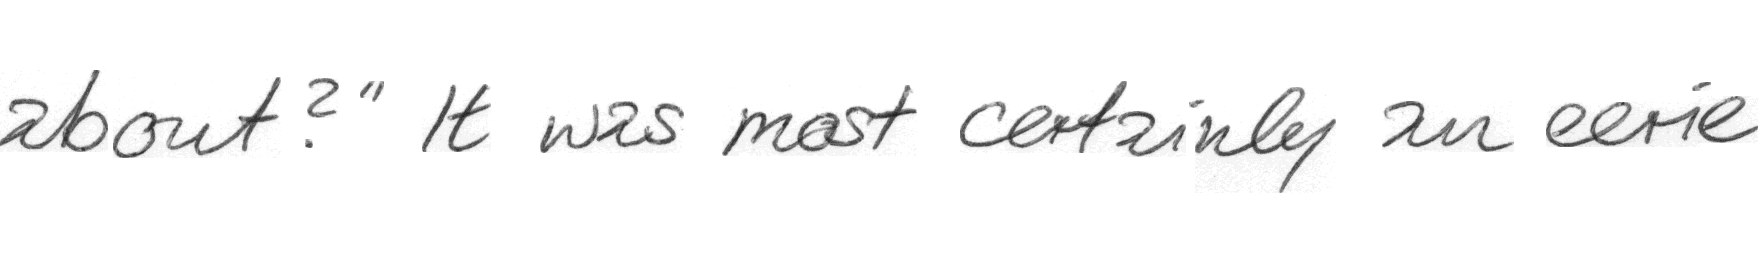 about?" It was most certainly an eerie